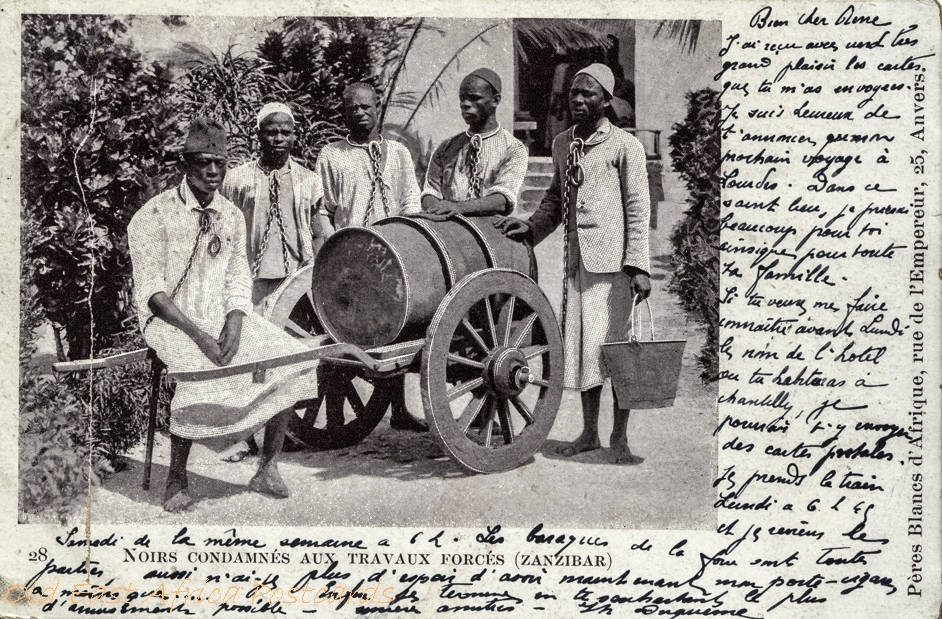 Bien cher René
J'ai reçu avec un très
grand plaisir les cartes
que tu m'as envoyées.
Je suis heureux de
t'annoncer mon
prochain voyage à
Lourdes. Dans ce
saint lieu, je prierai
beaucoup pour toi
ainsi que pour toute
ta famille.
Si tu veux me faire
connaître avant Lundi
le nom de l'hotel
ou tu habiteras à
chantilly, je
pourrais t'y envoyer
des cartes postales.
Je prends le train
Lundi a 6 h 45
et je reviens le
Samedi de la même semaine a 6 h. Les baraques de la
foire sont toutes
parties aussi n'ai-je plus d'espoir d'avoir maintenant mon porte-cigares
a moins que
Je termine en te souhaitant le plus
d'amusements possible
28. NOIRS CONDAMNÉS AUX TRAVAUX FORCÉS (ZANZIBAR)
Pères Blancs d'Afrique, rue de l'Empereur, 25, Anvers.
Old East Africa Postcards